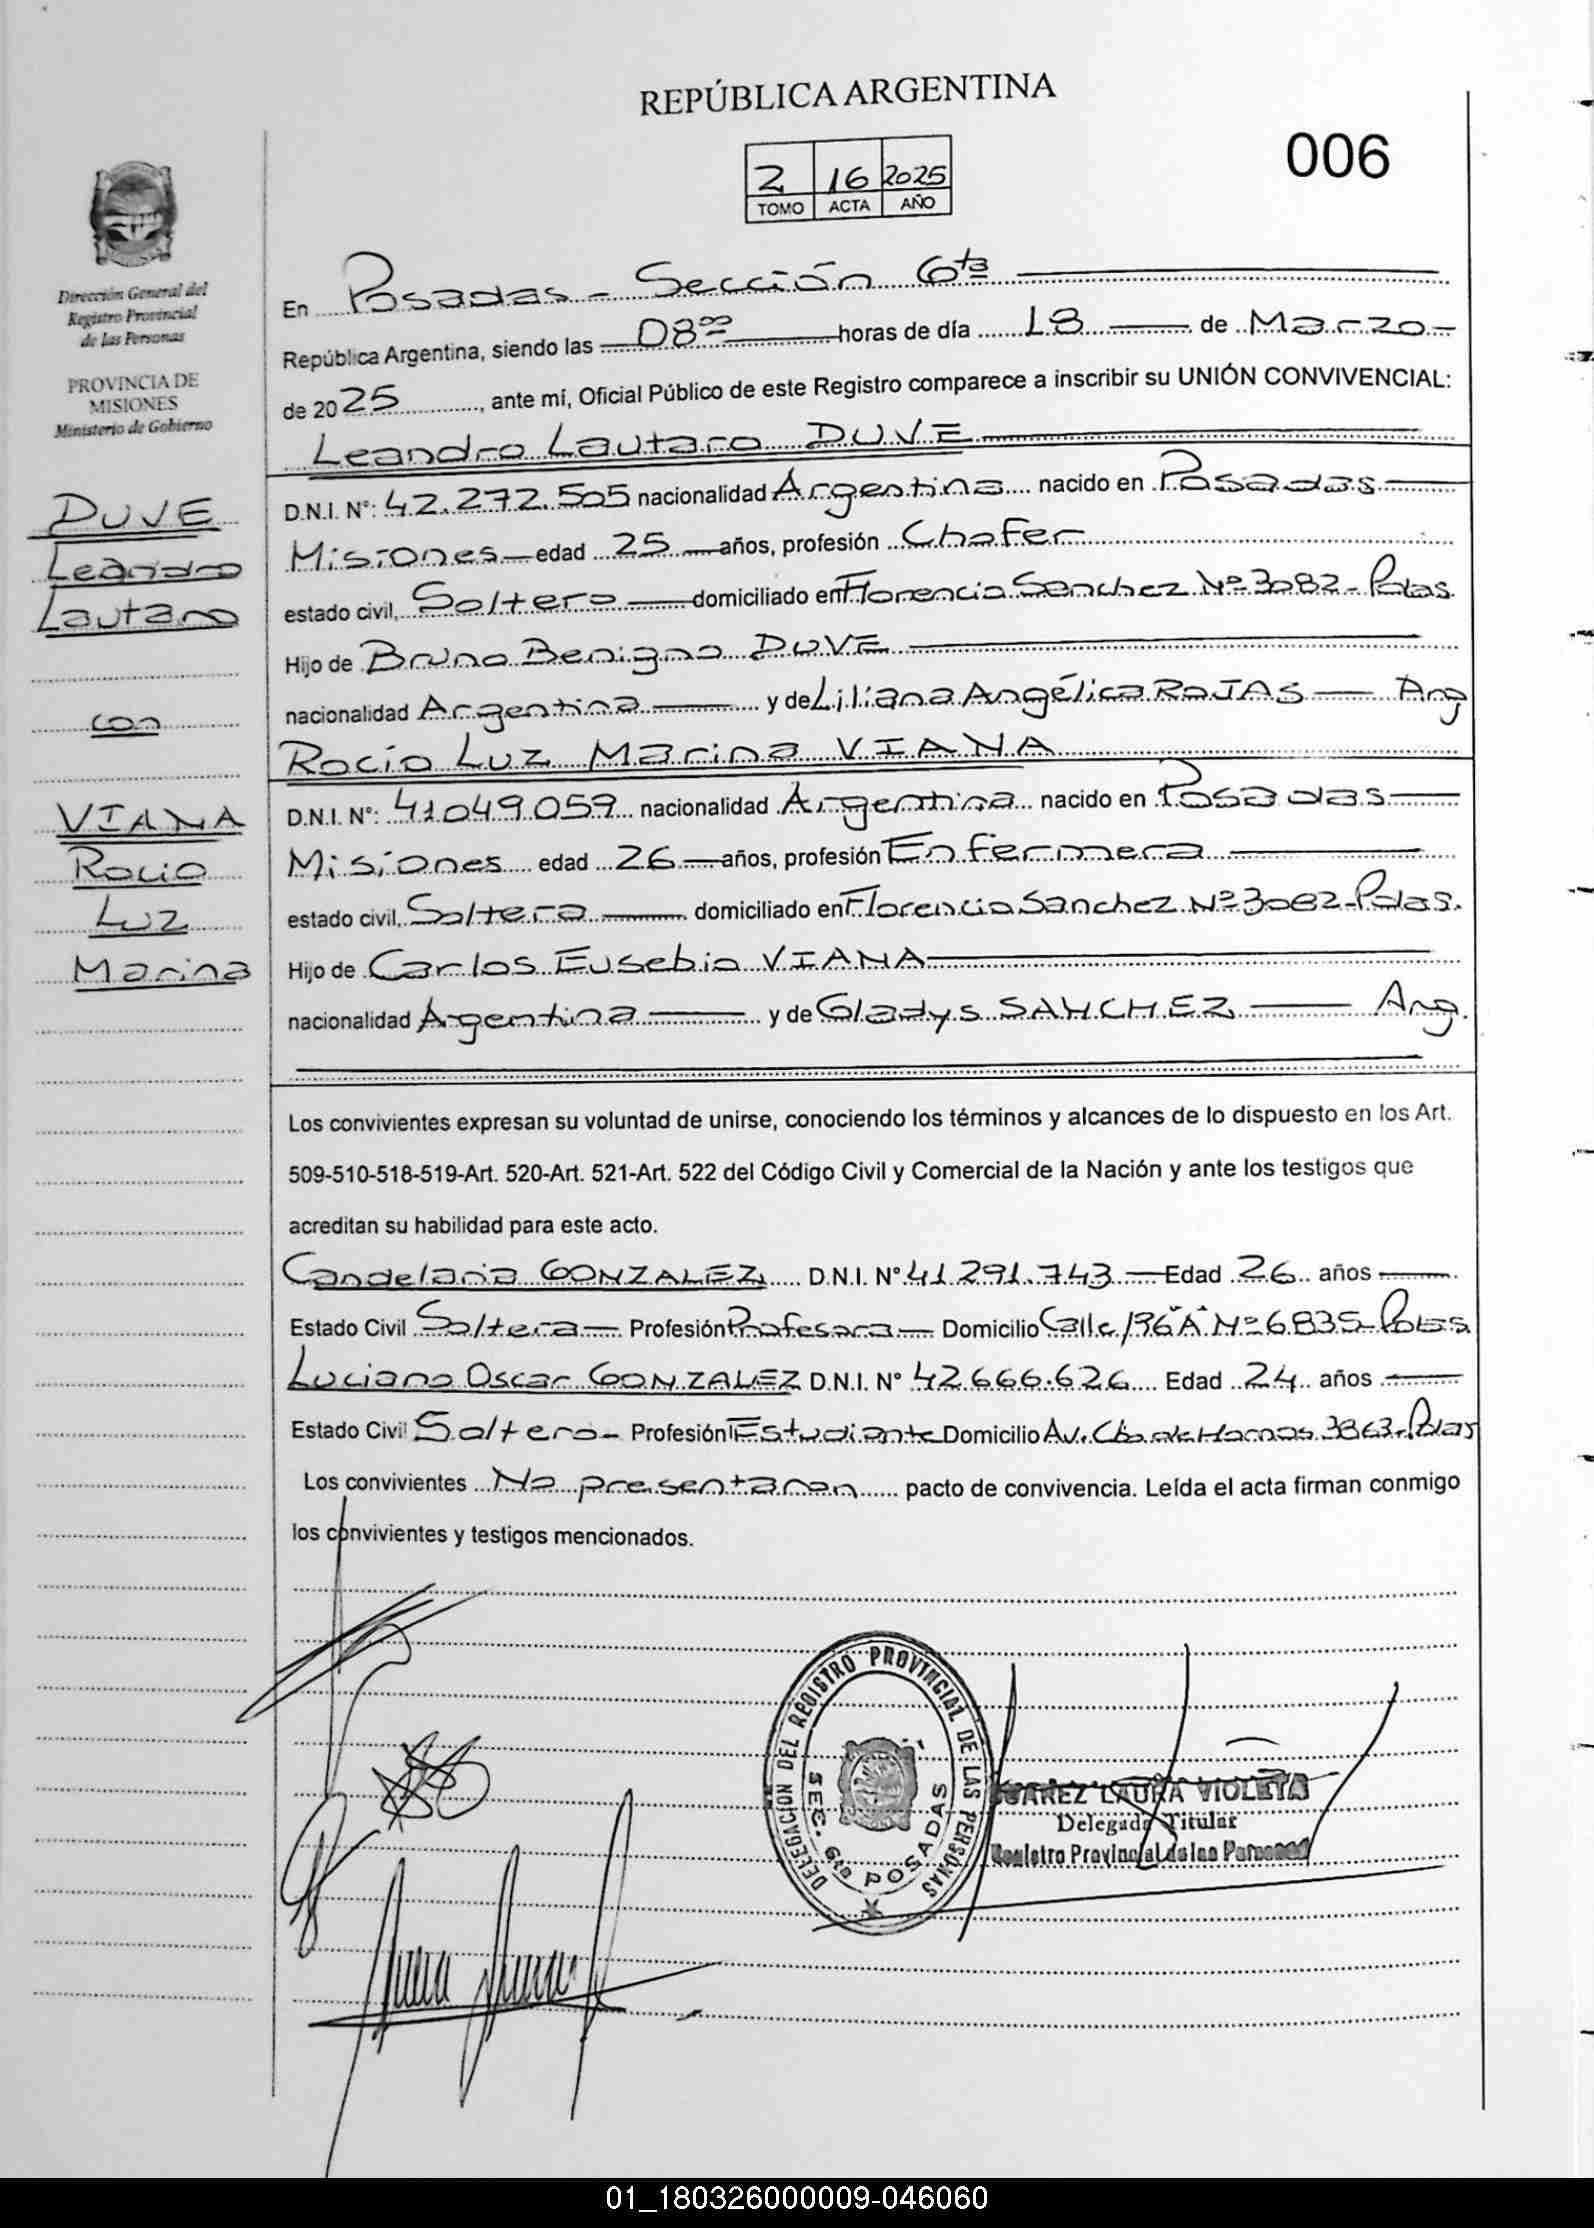 REPÚBLICA ARGENTINA
006
2 16 2025
TOMO ACTA AÑO
Dirección General del
Registro Provincial
de las Personas
PROVINCIA DE
MISIONES
Ministerio de Gobierno
DUVE
Leandro
Lautaro
con
VIANA
Rocio
Luz
Marina
En Posadas - Sección 6ta
República Argentina, siendo las 08⁰⁰ horas de día 18 de Marzo
de 2025, ante mí, Oficial Público de este Registro comparece a inscribir su UNIÓN CONVIVENCIAL:
Leandro Lautaro DUVE
D.N.I. N°: 42.272.505 nacionalidad Argentina nacido en Posadas
Misiones edad 25 años, profesión Chofer
estado civil, Soltero domiciliado en Florencio Sanchez Nº 3082 - Pdas.
Hijo de Bruno Benigno DUVE
nacionalidad Argentina y de Liliana Angélica ROJAS Arg
Rocío Luz Marina VIANA
D.N.I. N°: 41049.059 nacionalidad Argentina nacido en Posadas
Misiones edad 26 años, profesión Enfermera
estado civil, Soltera domiciliado en Florencio Sanchez Nº 3082 - Pdas.
Hijo de Carlos Eusebio VIANA
nacionalidad Argentina y de Gladys SANCHEZ Arg.
Los convivientes expresan su voluntad de unirse, conociendo los términos y alcances de lo dispuesto en los Art.
509-510-518-519-Art. 520-Art. 521-Art. 522 del Código Civil y Comercial de la Nación y ante los testigos que
acreditan su habilidad para este acto.
Candelaria GONZALEZ D.N.I. N° 41.291.743 Edad 26 años
Estado Civil Soltera Profesión Profesora Domicilio Calle 196 "A" Nº 6835 - Pdas
Luciano Oscar GONZALEZ D.N.I. N° 42.666.626 Edad 24 años
Estado Civil Soltero - Profesión Estudiante Domicilio Av. Cbo. de Hornos 3863 - Pdas
Los convivientes No presentaron pacto de convivencia. Leída el acta firman conmigo
los convivientes y testigos mencionados.
DELEGACION DEL REGISTRO PROVINCIAL DE LAS PERSONAS
SEC. 6ta POSADAS
LAURA VIOLETA
Delegada Titular
Registro Provincial de las Personas
01_180326000009-046060